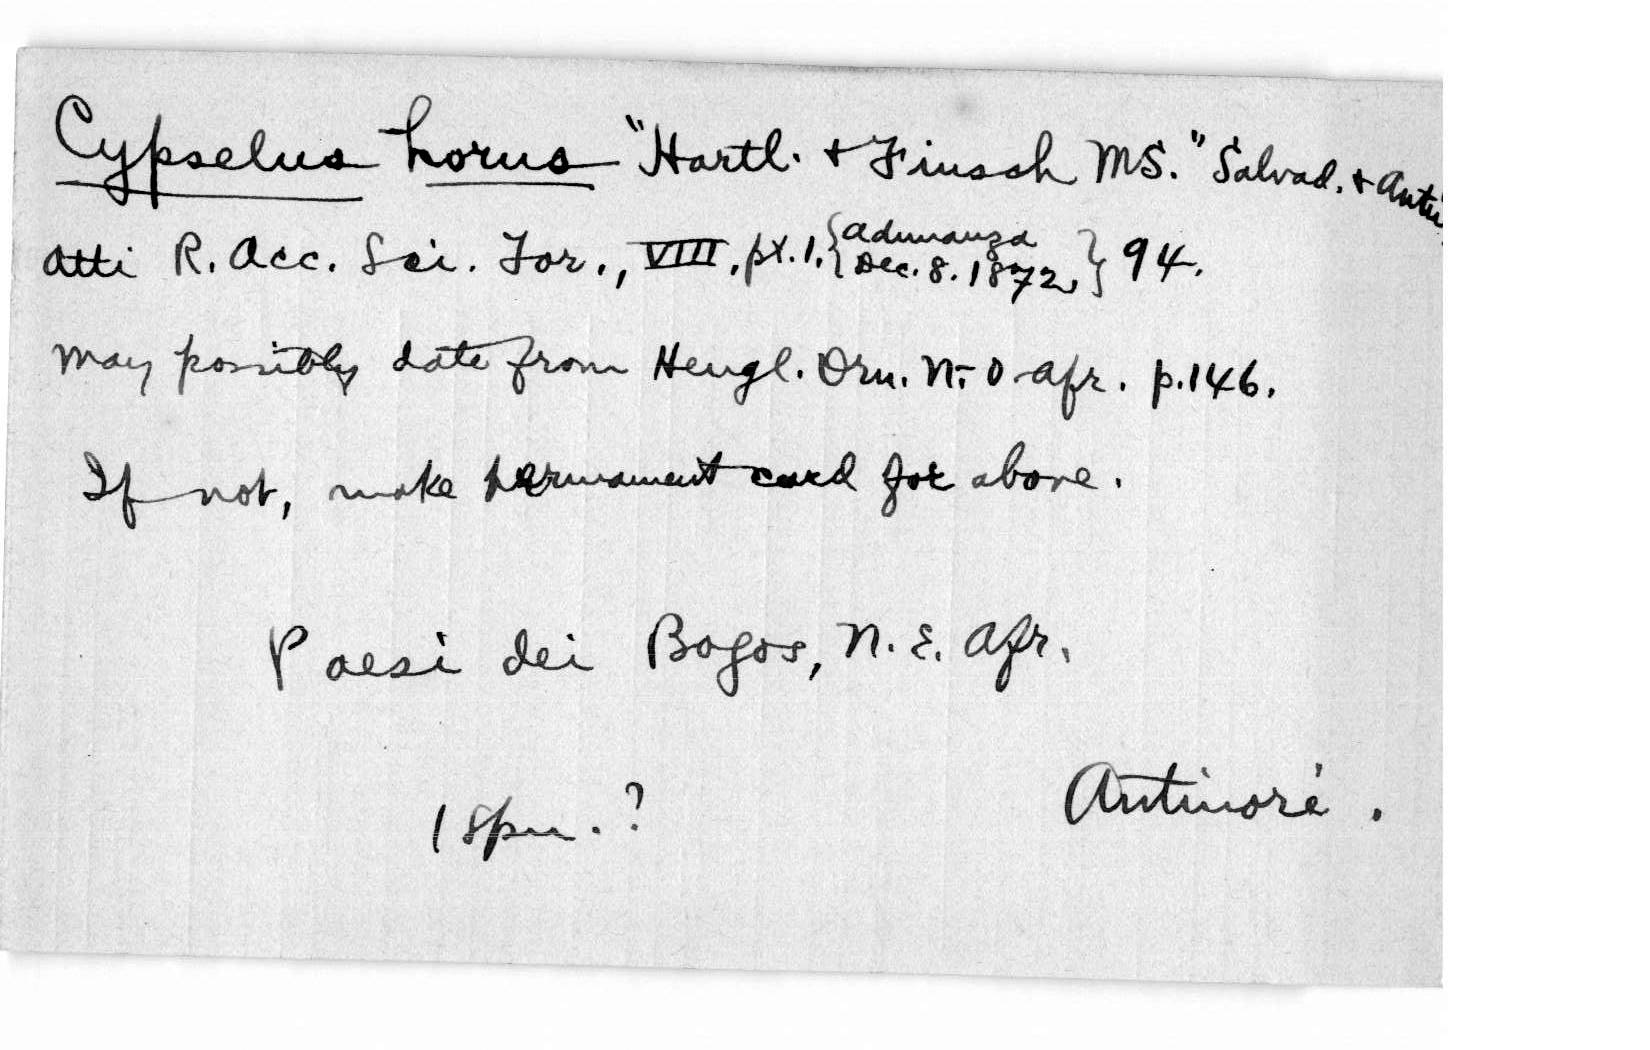 Cypselus horus "Hartl. & Finsch MS." Salvad. & Antin
Atti R. Acc. Sci. Tor., VIII, pt. 1, {Adunanza Dec. 8. 1872,} 94.
May possibly date from Heugl. Orn. N.-O-Afr. p. 146.
If not, make permanent card for above.
Paesi dei Bogos, N. E. Afr.
Antinori.
1 spn. ?